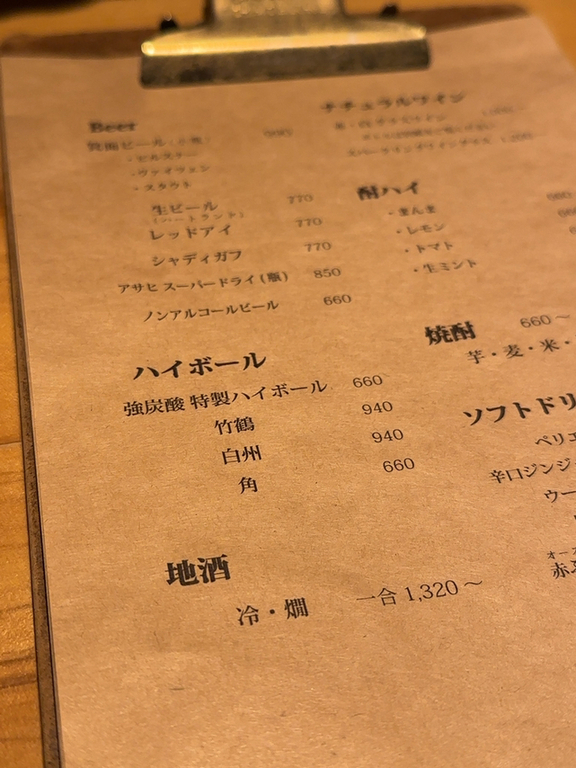 Beer
箕面ビール(小瓶) 990
・ピルスナー
・ヴァイツェン
・スタウト
生ビール 770
(ハートランド)
レッドアイ 770
シャディガフ 770
アサヒ スーパードライ(瓶) 850
ノンアルコールビール 660
ハイボール
強炭酸 特製ハイボール 660
竹鶴 940
白州 940
角 660
地酒
冷・燗 一合 1,320～
ナチュラルワイン
赤・白 グラスワイン
スパークリングワイングラス
酎ハイ
・まんま 660
・レモン
・トマト
・生ミント
焼酎 660～
芋・麦・米・
ソフトドリ
ペリエ
辛口ジンジ
ウー